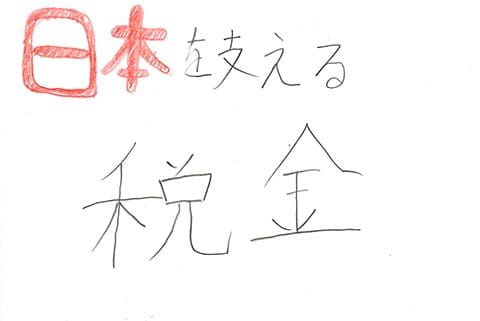 日本を支える
税金